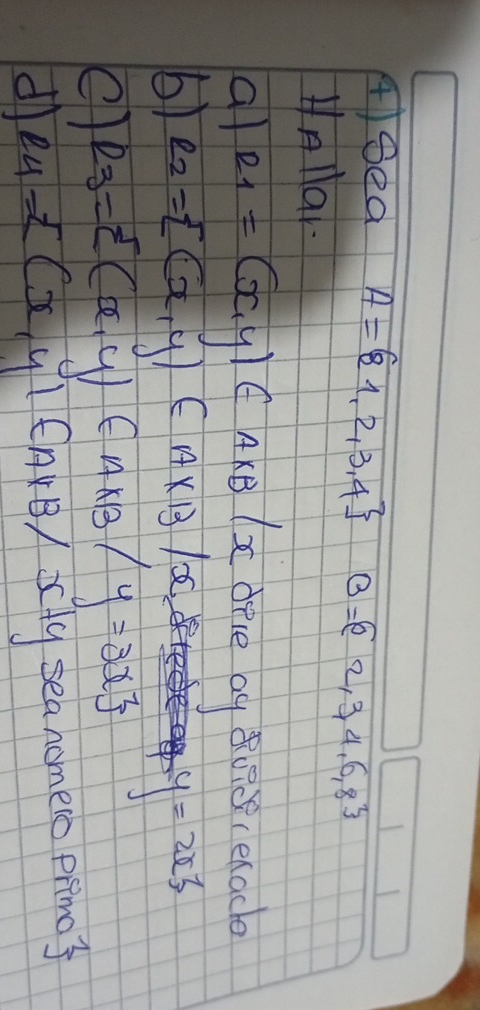 4) Sea A = { 1, 2, 3, 4 } B = { 2, 3, 4, 6, 8 }
Hallar
a) R1 = (x, y) ∈ AxB / x divide a y división exacta
b) R2 = { (x, y) ∈ AxB / x, y = 2x }
c) R3 = { (x, y) ∈ AxB / y = 3x }
d) R4 = { (x, y) ∈ AxB / x+y sea numero primo }